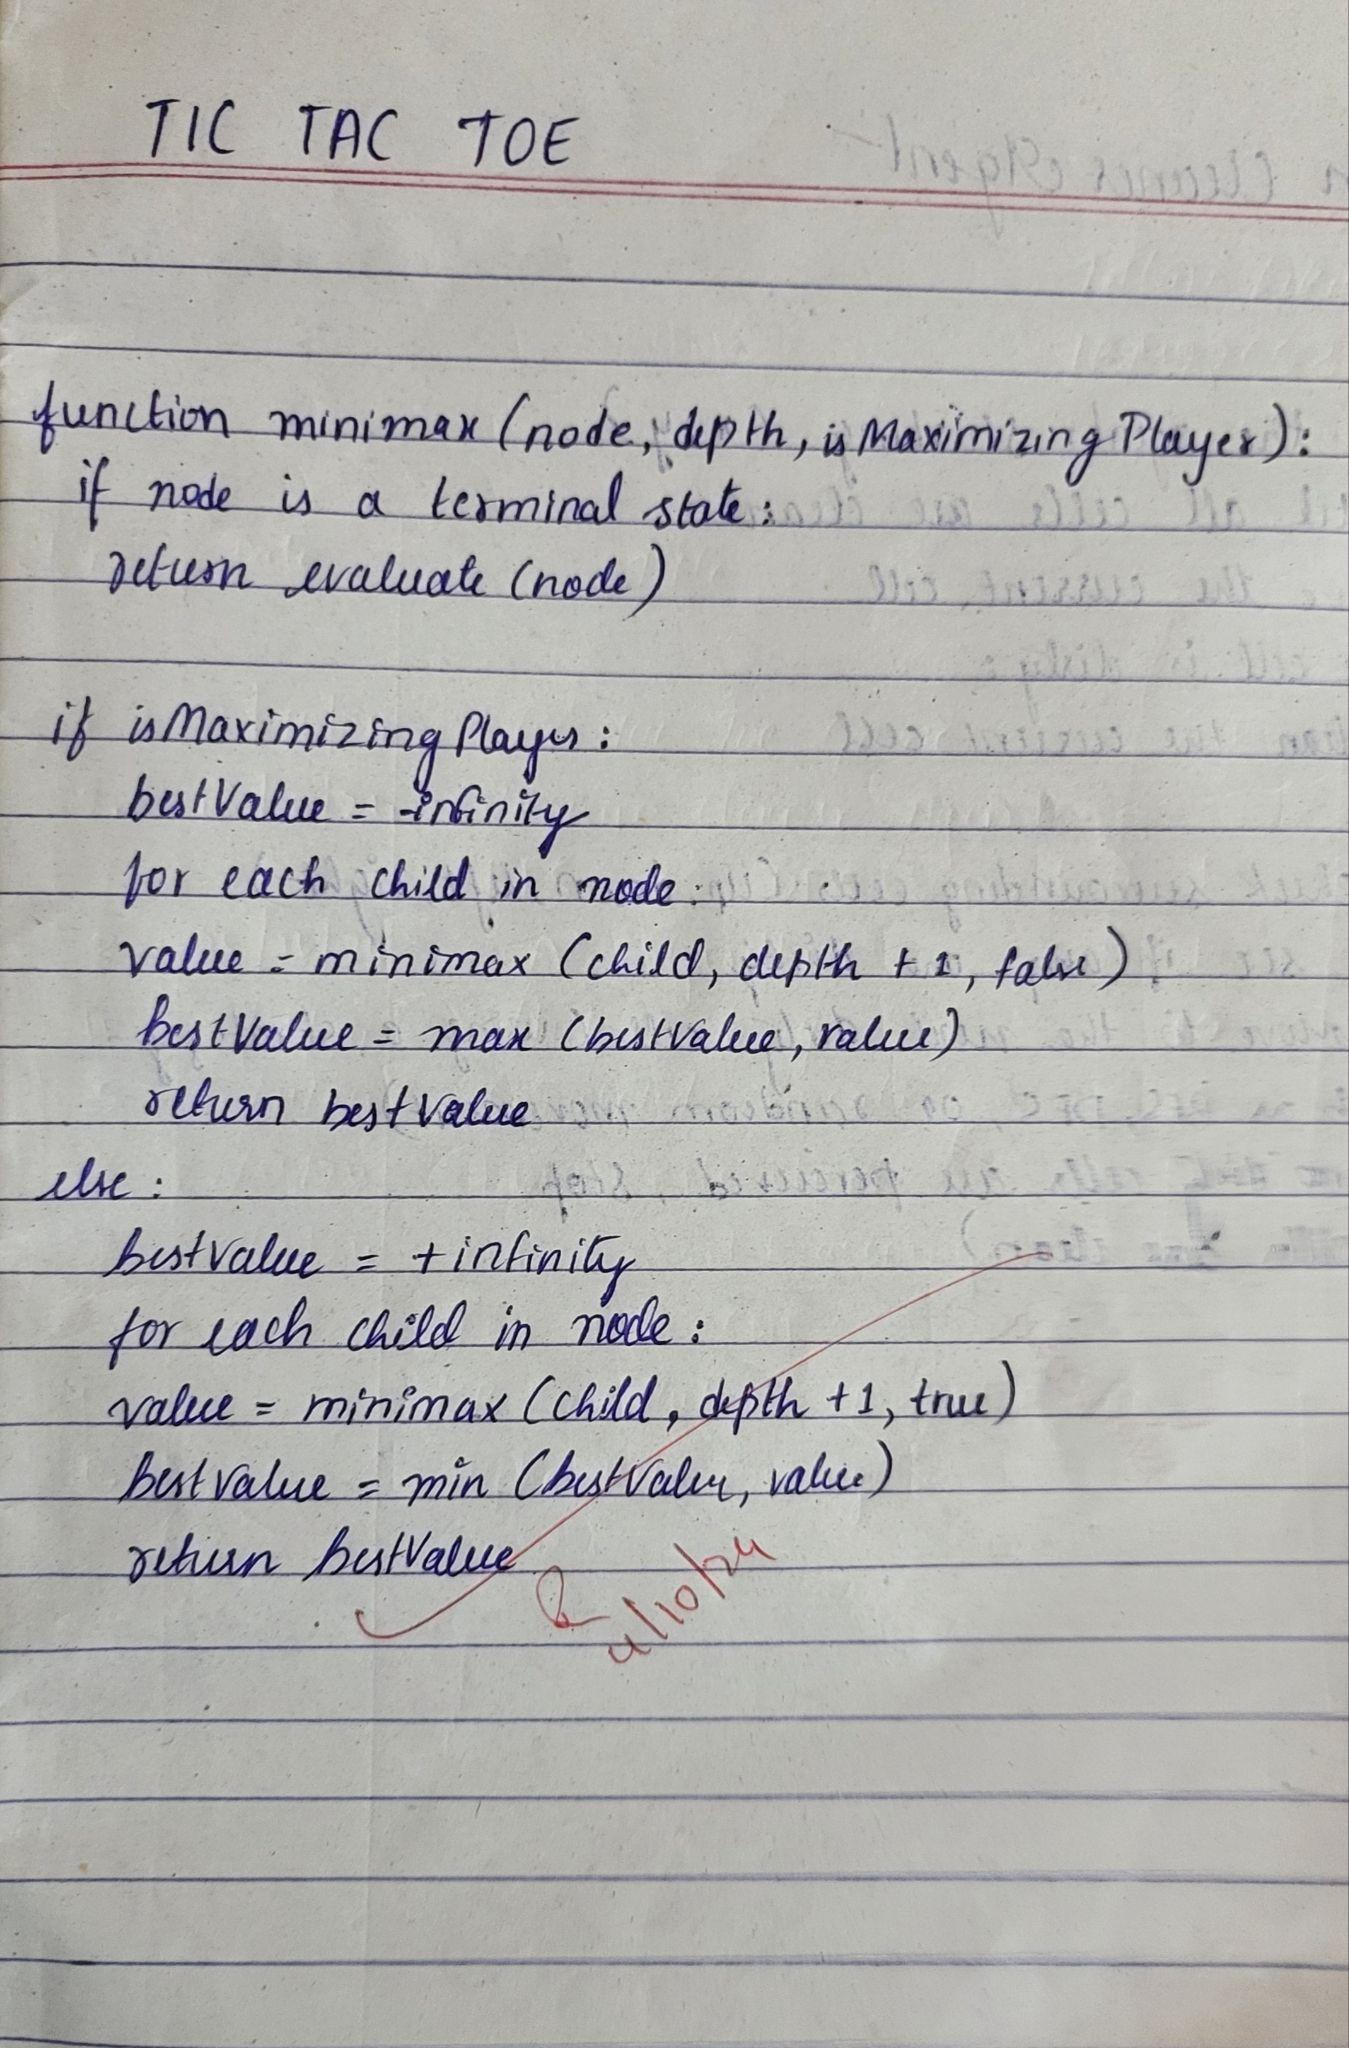 TIC TAC TOE
function minimax (node, depth, isMaximizing Player):
if node is a terminal state:
return evaluate (node)
if isMaximizing Player:
bestValue = -infinity
for each child in node:
value = minimax (child, depth + 1, false)
bestValue = max (bestValue, value)
return bestValue
else:
bestvalue = +infinity
for each child in node:
value = minimax (child, depth +1, true)
bestvalue = min (bestValue, value)
return bestValue
4/10/24